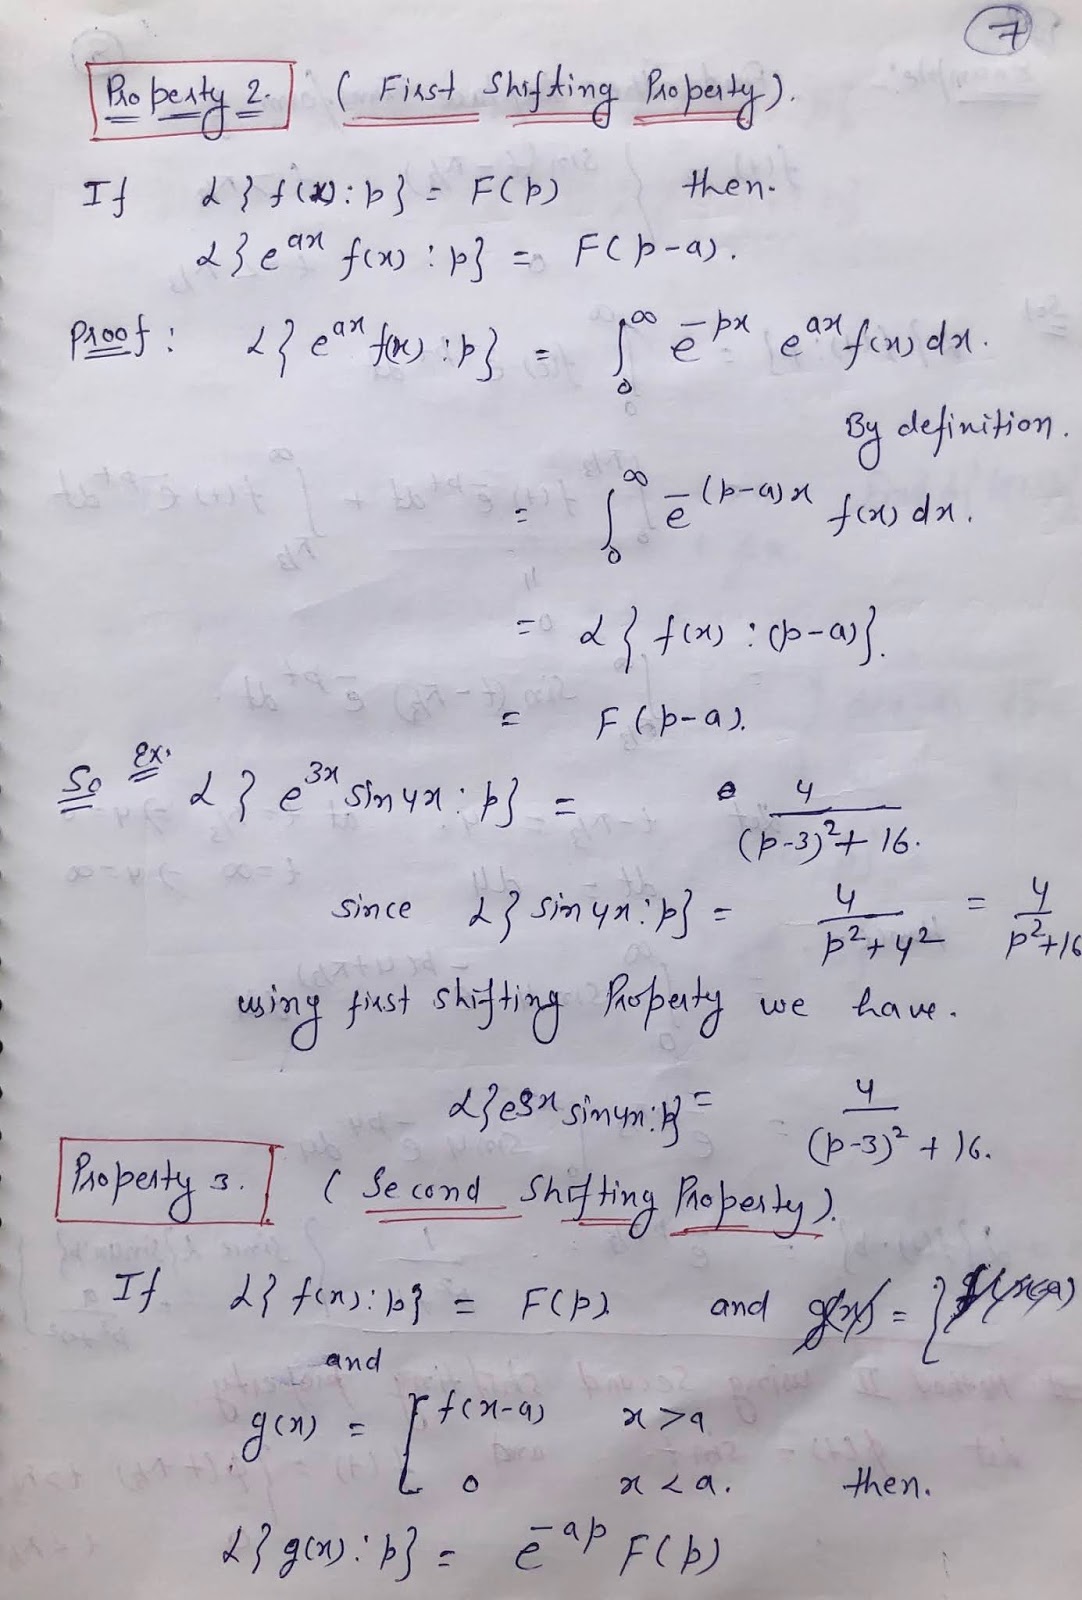 7
Property 2. (First Shifting Property).
If L{f(x):p} = F(p) then.
L{e^{ax} f(x) : p} = F(p-a).
Proof : L{e^{ax} f(x) : p} = ∫_0^∞ e^{-px} e^{ax} f(x) dx.
By definition.
= ∫_0^∞ e^{-(p-a)x} f(x) dx.
= L{f(x) : (p-a)}.
= F(p-a).
So Ex. L{e^{3x} sin4x : p} = 4/((p-3)^2 + 16.
since L{sin4x : p} = 4/(p^2+4^2) = 4/(p^2+16
using first shifting Property we have.
L{e^{3x} sin4x : p} = 4/((p-3)^2 + 16.
Property 3. (Second Shifting Property).
If L{f(x):p} = F(p). and g(x) = {
and
g(x) = [ f(x-a) x>a
0 x<a. then.
L{g(x) : p} = e^{-ap} F(p)